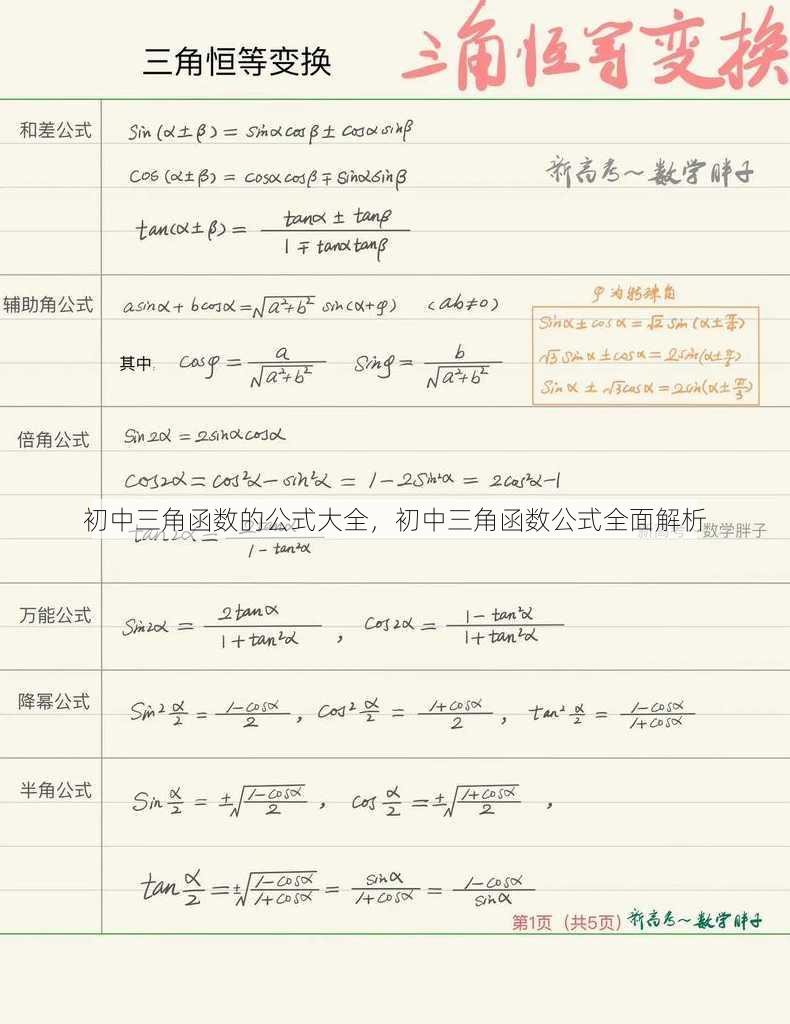 三角恒等变换
三角恒等变换
和差公式
sin(α±β) = sinαcosβ ± cosαsinβ
新高考~数学胖子
cos(α±β) = cosαcosβ ∓ sinαsinβ
tan(α±β) = (tanα ± tanβ)/(1 ∓ tanαtanβ)
φ为特殊角
辅助角公式
asinα + bcosα = √(a²+b²) sin(α+φ) (ab≠0)
sinα ± cosα = √2 sin(α±π/4)
其中: cosφ = a/√(a²+b²) sinφ = b/√(a²+b²)
√3 sinα ± cosα = 2sin(α±π/6)
sinα ± √3cosα = 2sin(α±π/3)
倍角公式
sin2α = 2sinαcosα
cos2α = cos²α − sin²α = 1 − 2sin²α = 2cos²α − 1
初中三角函数的公式大全，初中三角函数公式全面解析
tan2α = 2tanα/(1 − tan²α)
数学胖子
万能公式
sin2α = 2tanα/(1 + tan²α) , cos2α = (1 − tan²α)/(1 + tan²α)
降幂公式
sin²α/2 = (1−cosα)/2 , cos²α/2 = (1+cosα)/2 , tan²α/2 = (1−cosα)/(1+cosα)
半角公式
sinα/2 = ±√((1−cosα)/2) , cosα/2 = ±√((1+cosα)/2) ,
tanα/2 = ±√((1−cosα)/(1+cosα)) = sinα/(1+cosα) = (1−cosα)/sinα
第1页（共5页）新高考~数学胖子